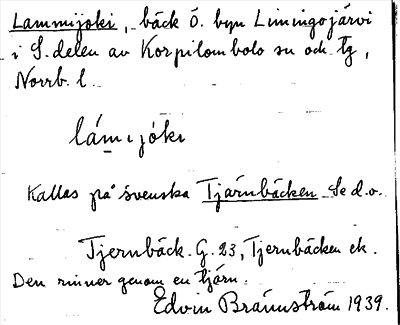 Lammijoki, bäck Ö. byn Liiningojärvi
i S. delen av Korpilombolo sn och tg,
Norrb. l.
lám i jóki
Kallas på svenska Tjärnbäcken. Se d.o.
Tjernbäck. G. 23, Tjernbäcken ek.
Den rinner genom en tjärn.
Edvin Brännström 1939.